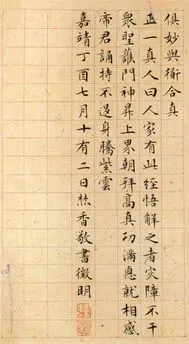 俱妙與術合真
正一真人曰人家有此經悟解之者灾障不干
眾聖護門神昇上界朝拜高真功滿惪就相感
帝君誦持不退身騰紫雲
嘉靖丁酉七月十有二日焚香敬書徵明